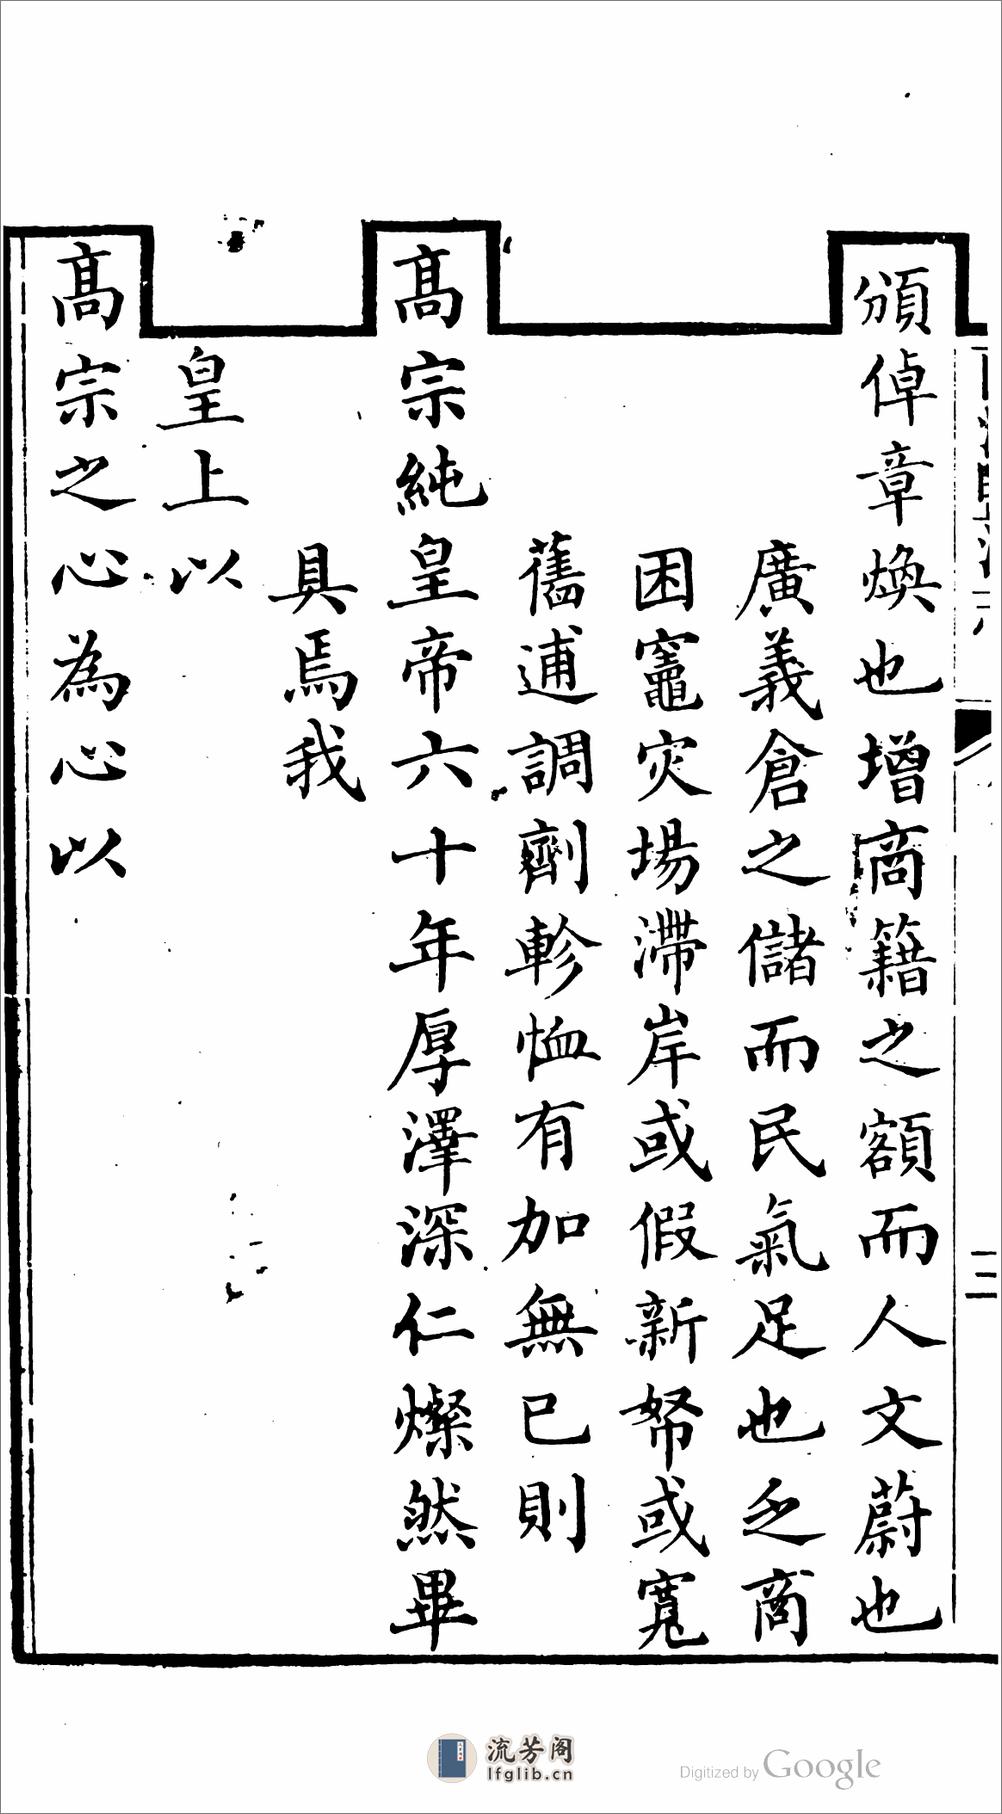 頒倬章煥也增商籍之額而人文蔚也
廣義倉之儲而民氣足也乏商
困竈灾場滯岸或假新帑或寬
舊逋調劑軫恤有加無已則
髙宗純皇帝六十年厚澤深仁燦然畢
具焉我
皇上以
髙宗之心為心以
二
流芳阁
lfglib.cn
Digitized by Google